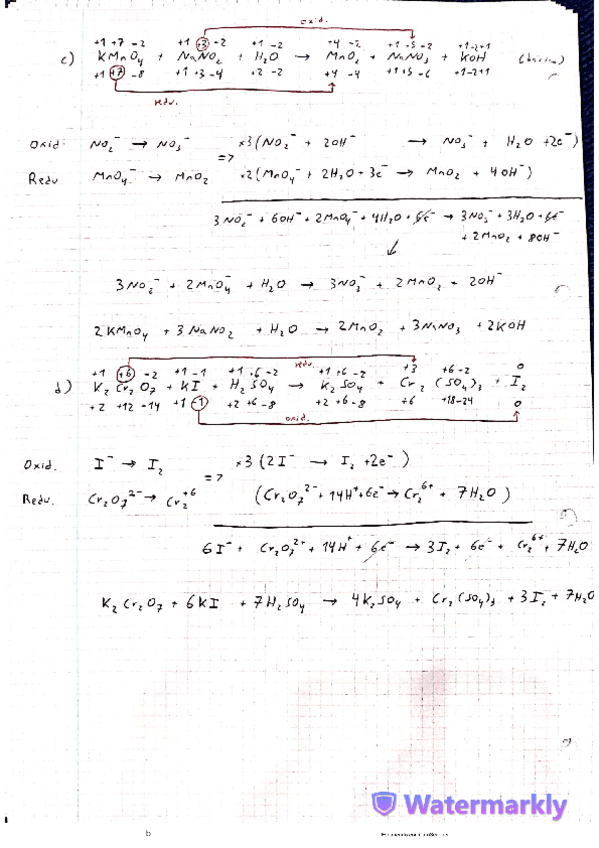 oxid.
+1 +7 -2 +1 +3 -2 +1 -2 +4 -2 +1 +5 -2 +1 -2 +1
c) KMnO4 + NaNO2 + H2O → MnO2 + NaNO3 + KOH
+1 +7 -8 +1 +3 -4 +2 -2 +4 -4 +1 +5 -6 +1 -2 +1
redu.
Oxid: NO2⁻ → NO3⁻ ×3 (NO2⁻ + 2OH⁻ → NO3⁻ + H2O + 2e⁻)
=>
Redu MnO4⁻ → MnO2 ×2 (MnO4⁻ + 2H2O + 3e⁻ → MnO2 + 4OH⁻)
3NO2⁻ + 6OH⁻ + 2MnO4⁻ + 4H2O + 6e⁻ → 3NO3⁻ + 3H2O + 6e⁻
+ 2MnO2 + 8OH⁻
↓
3NO2⁻ + 2MnO4⁻ + H2O → 3NO3⁻ + 2MnO2 + 2OH⁻
2KMnO4 + 3NaNO2 + H2O → 2MnO2 + 3NaNO3 + 2KOH
redu.
+1 +6 -2 +1 -1 +1 +6 -2 +1 +6 -2 +3 +6 -2 0
d) K2Cr2O7 + KI + H2SO4 → K2SO4 + Cr2(SO4)3 + I2
+2 +12 -14 +1 -1 +2 +6 -8 +2 +6 -8 +6 +18 -24 0
oxid.
Oxid. I⁻ → I2 ×3 (2I⁻ → I2 + 2e⁻)
=>
Redu. Cr2O7²⁻ → Cr2⁺⁶ (Cr2O7²⁻ + 14H⁺ + 6e⁻ → Cr2⁶⁺ + 7H2O)
6I⁻ + Cr2O7²⁺ + 14H⁺ + 6e⁻ → 3I2 + 6e⁻ + Cr2⁶⁺ + 7H2O
K2Cr2O7 + 6KI + 7H2SO4 → 4K2SO4 + Cr2(SO4)3 + 3I2 + 7H2O
Watermarkly